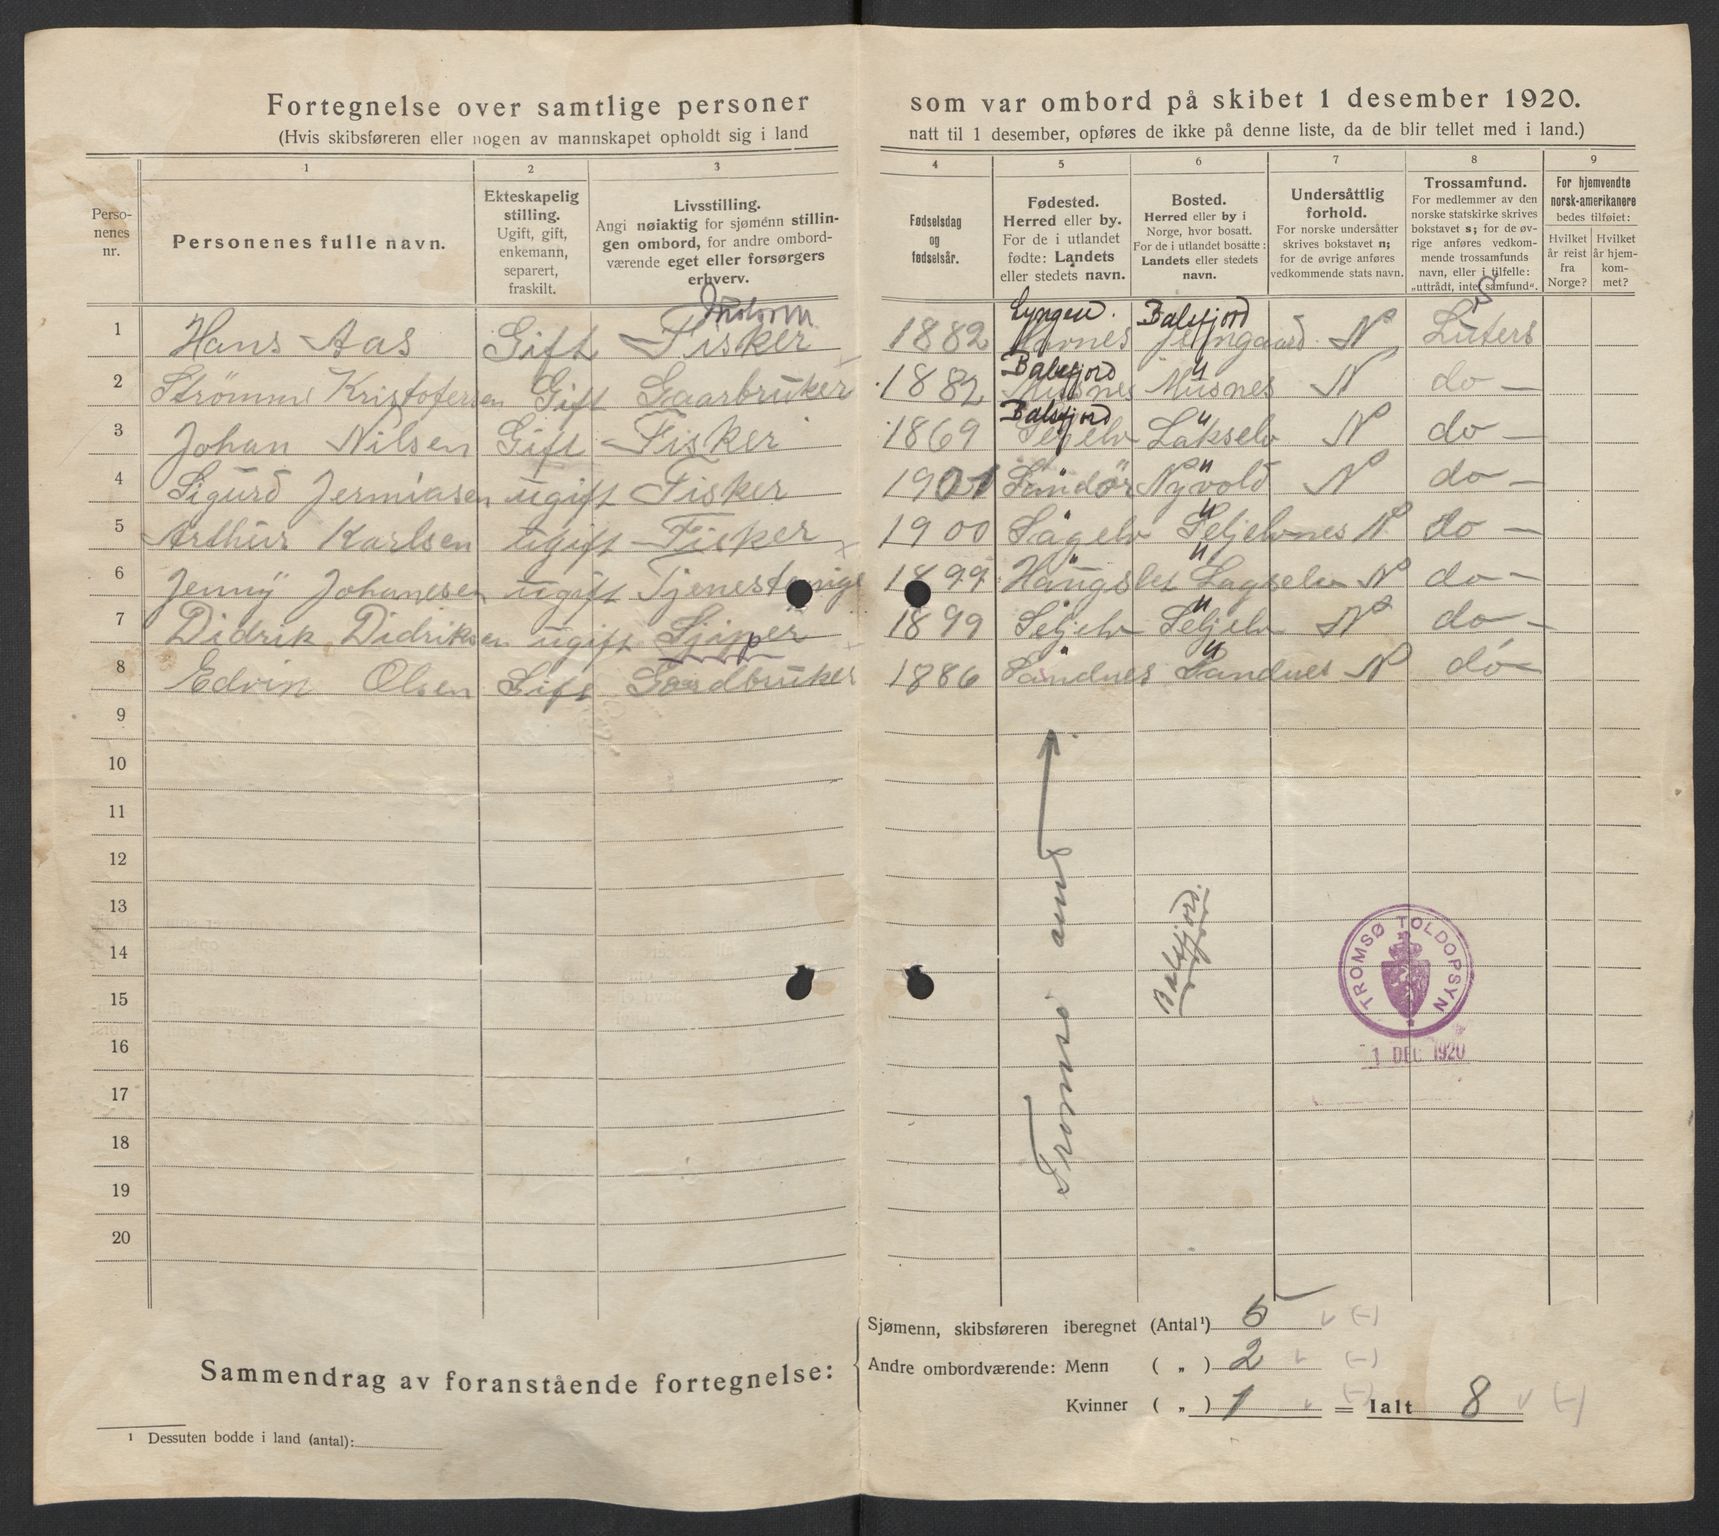 Fortegnelse over samtlige personer som var ombord på skibet 1 desember 1920.
(Hvis skibsføreren eller nogen av mannskapet opholdt sig i land natt til 1 desember, opføres de ikke på denne liste, da de blir tellet med i land.)
Perso-
nenes
nr.
1
Personenes fulle navn.
2
Ekteskapelig
stilling.
Ugift, gift,
enkemann,
separert,
fraskilt.
3
Livsstilling.
Angi nøiaktig for sjømenn stillin-
gen ombord, for andre ombord-
værende eget eller forsørgers
erhverv.
4
Fødselsdag
og
fødselsår.
5
Fødested.
Herred eller by.
For de i utlandet
fødte: Landets
eller stedets navn.
6
Bosted.
Herred eller by i
Norge, hvor bosatt.
For de i utlandet bosatte:
Landets eller stedets
navn.
7
Undersåttlig
forhold.
For norske undersåtter
skrives bokstavet n;
for de øvrige anføres
vedkommende stats navn.
8
Trossamfund.
For medlemmer av den
norske statskirke skrives
bokstavet s; for de øv-
rige anføres vedkom-
mende trossamfunds
navn, eller i tilfelle:
"uttrådt, intet samfund".
9
For hjemvendte
norsk-amerikanere
bedes tilføiet:
Hvilket
år reist
fra
Norge?
Hvilket
år hjem-
kom-
met?
Lyngen. Balsfjord S
1 Hans Aas Gift Fisker 1882 Havnes N Luters
Balsfjord "
2 Strømm Kristofersen Gift Gaarbruker 1882 Musnes Musnes N do
Balsfjord "
3 Johan Nilsen Gift Fisker 1869 Sejelv Lakselv N do
"
4 Sigurd Jermiasen ugift Fisker 1901 Nyvold N do
"
5 Arthur Karlsen ugift Fisker 1900 Sagelv Seljelvnes N do
"
6 Jenny Johanesen ugift Tjenestepige 1899 Lagselv N do
"
7 Didrik Didriksen ugift 1899 Seljelv Seljelv N do
"
8 Edvin Olsen Gift Gaardbruker 1886 Sandnes Sandnes N do
9
10
11
12
13
14
15
16
17
18
19
20
Tromsø amt
Balsfjord.
TROMSØ TOLDOPSYN
1 DEC 1920
Sammendrag av foranstående fortegnelse:
Sjømenn, skibsføreren iberegnet (Antal¹) 5 (-)
Andre ombordværende: Menn ( „ ) 2 (-)
Kvinner ( „ ) 1 (-) = Ialt 8 (-)
¹ Dessuten bodde i land (antal):